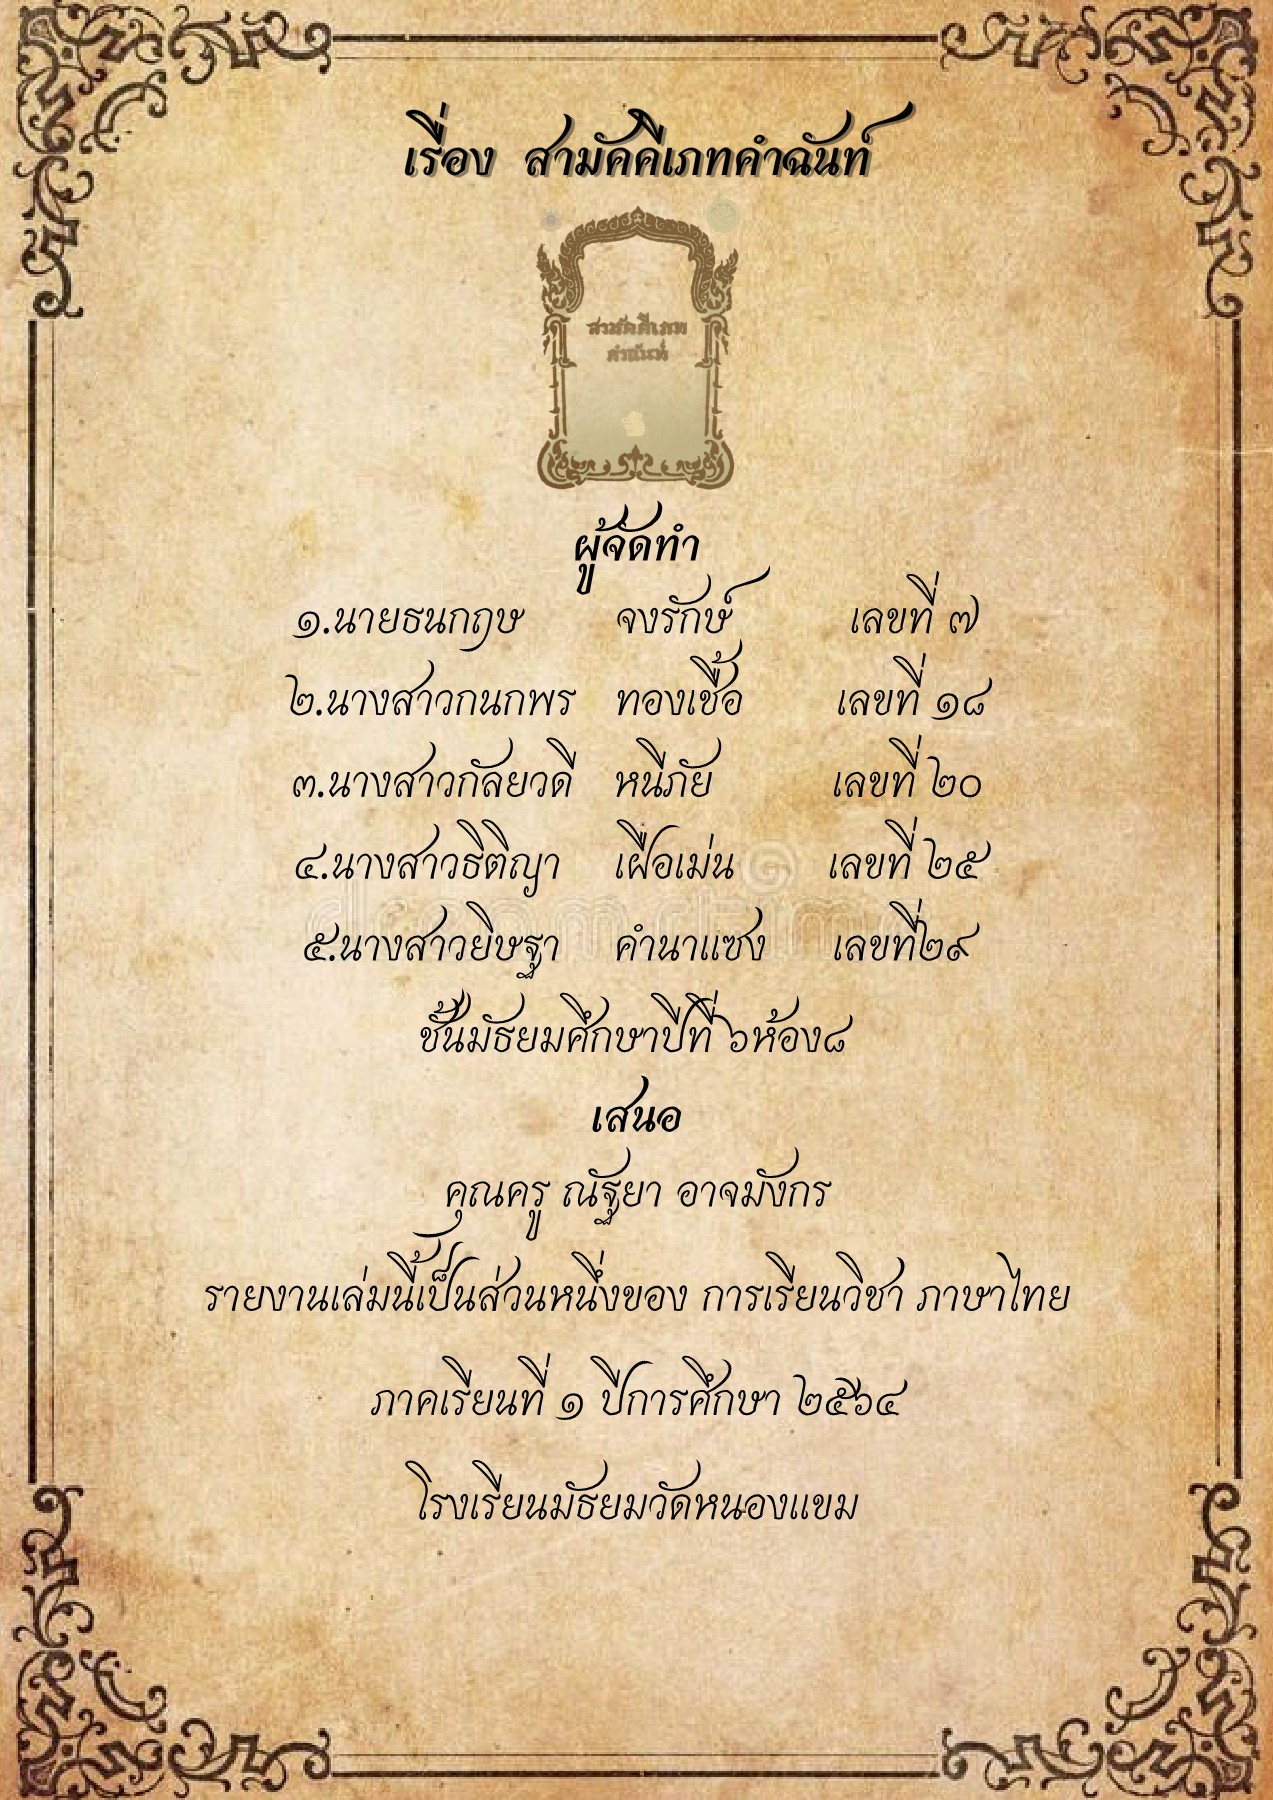 เรื่อง สามัคคีเภทคำฉันท์
สามัคคีเภท
คำฉันท์
ผู้จัดทำ
๑.นายธนกฤษ จงรักษ์ เลขที่ ๗
๒.นางสาวกนกพร ทองเชื้อ เลขที่ ๑๘
๓.นางสาวกัลยวดี หนีภัย เลขที่ ๒๐
๔.นางสาวธิติญา เฝือเม่น เลขที่ ๒๕
๕.นางสาวยิษฐา คำนาแซง เลขที่๒๙
ชั้นมัธยมศึกษาปีที่ ๖ห้อง๘
เสนอ
คุณครู ณัฐยา อาจมังกร
รายงานเล่มนี้เป็นส่วนหนึ่งของ การเรียนวิชา ภาษาไทย
ภาคเรียนที่ ๑ ปีการศึกษา ๒๕๖๔
โรงเรียนมัธยมวัดหนองแขม